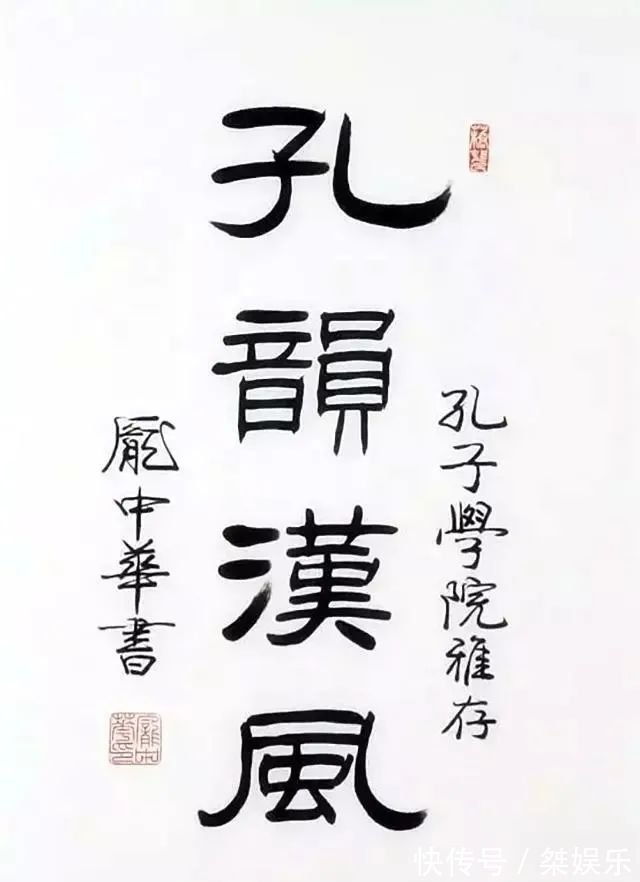 孔子學院雅存
孔韻漢風
龐中華書
快传号/桀娱乐